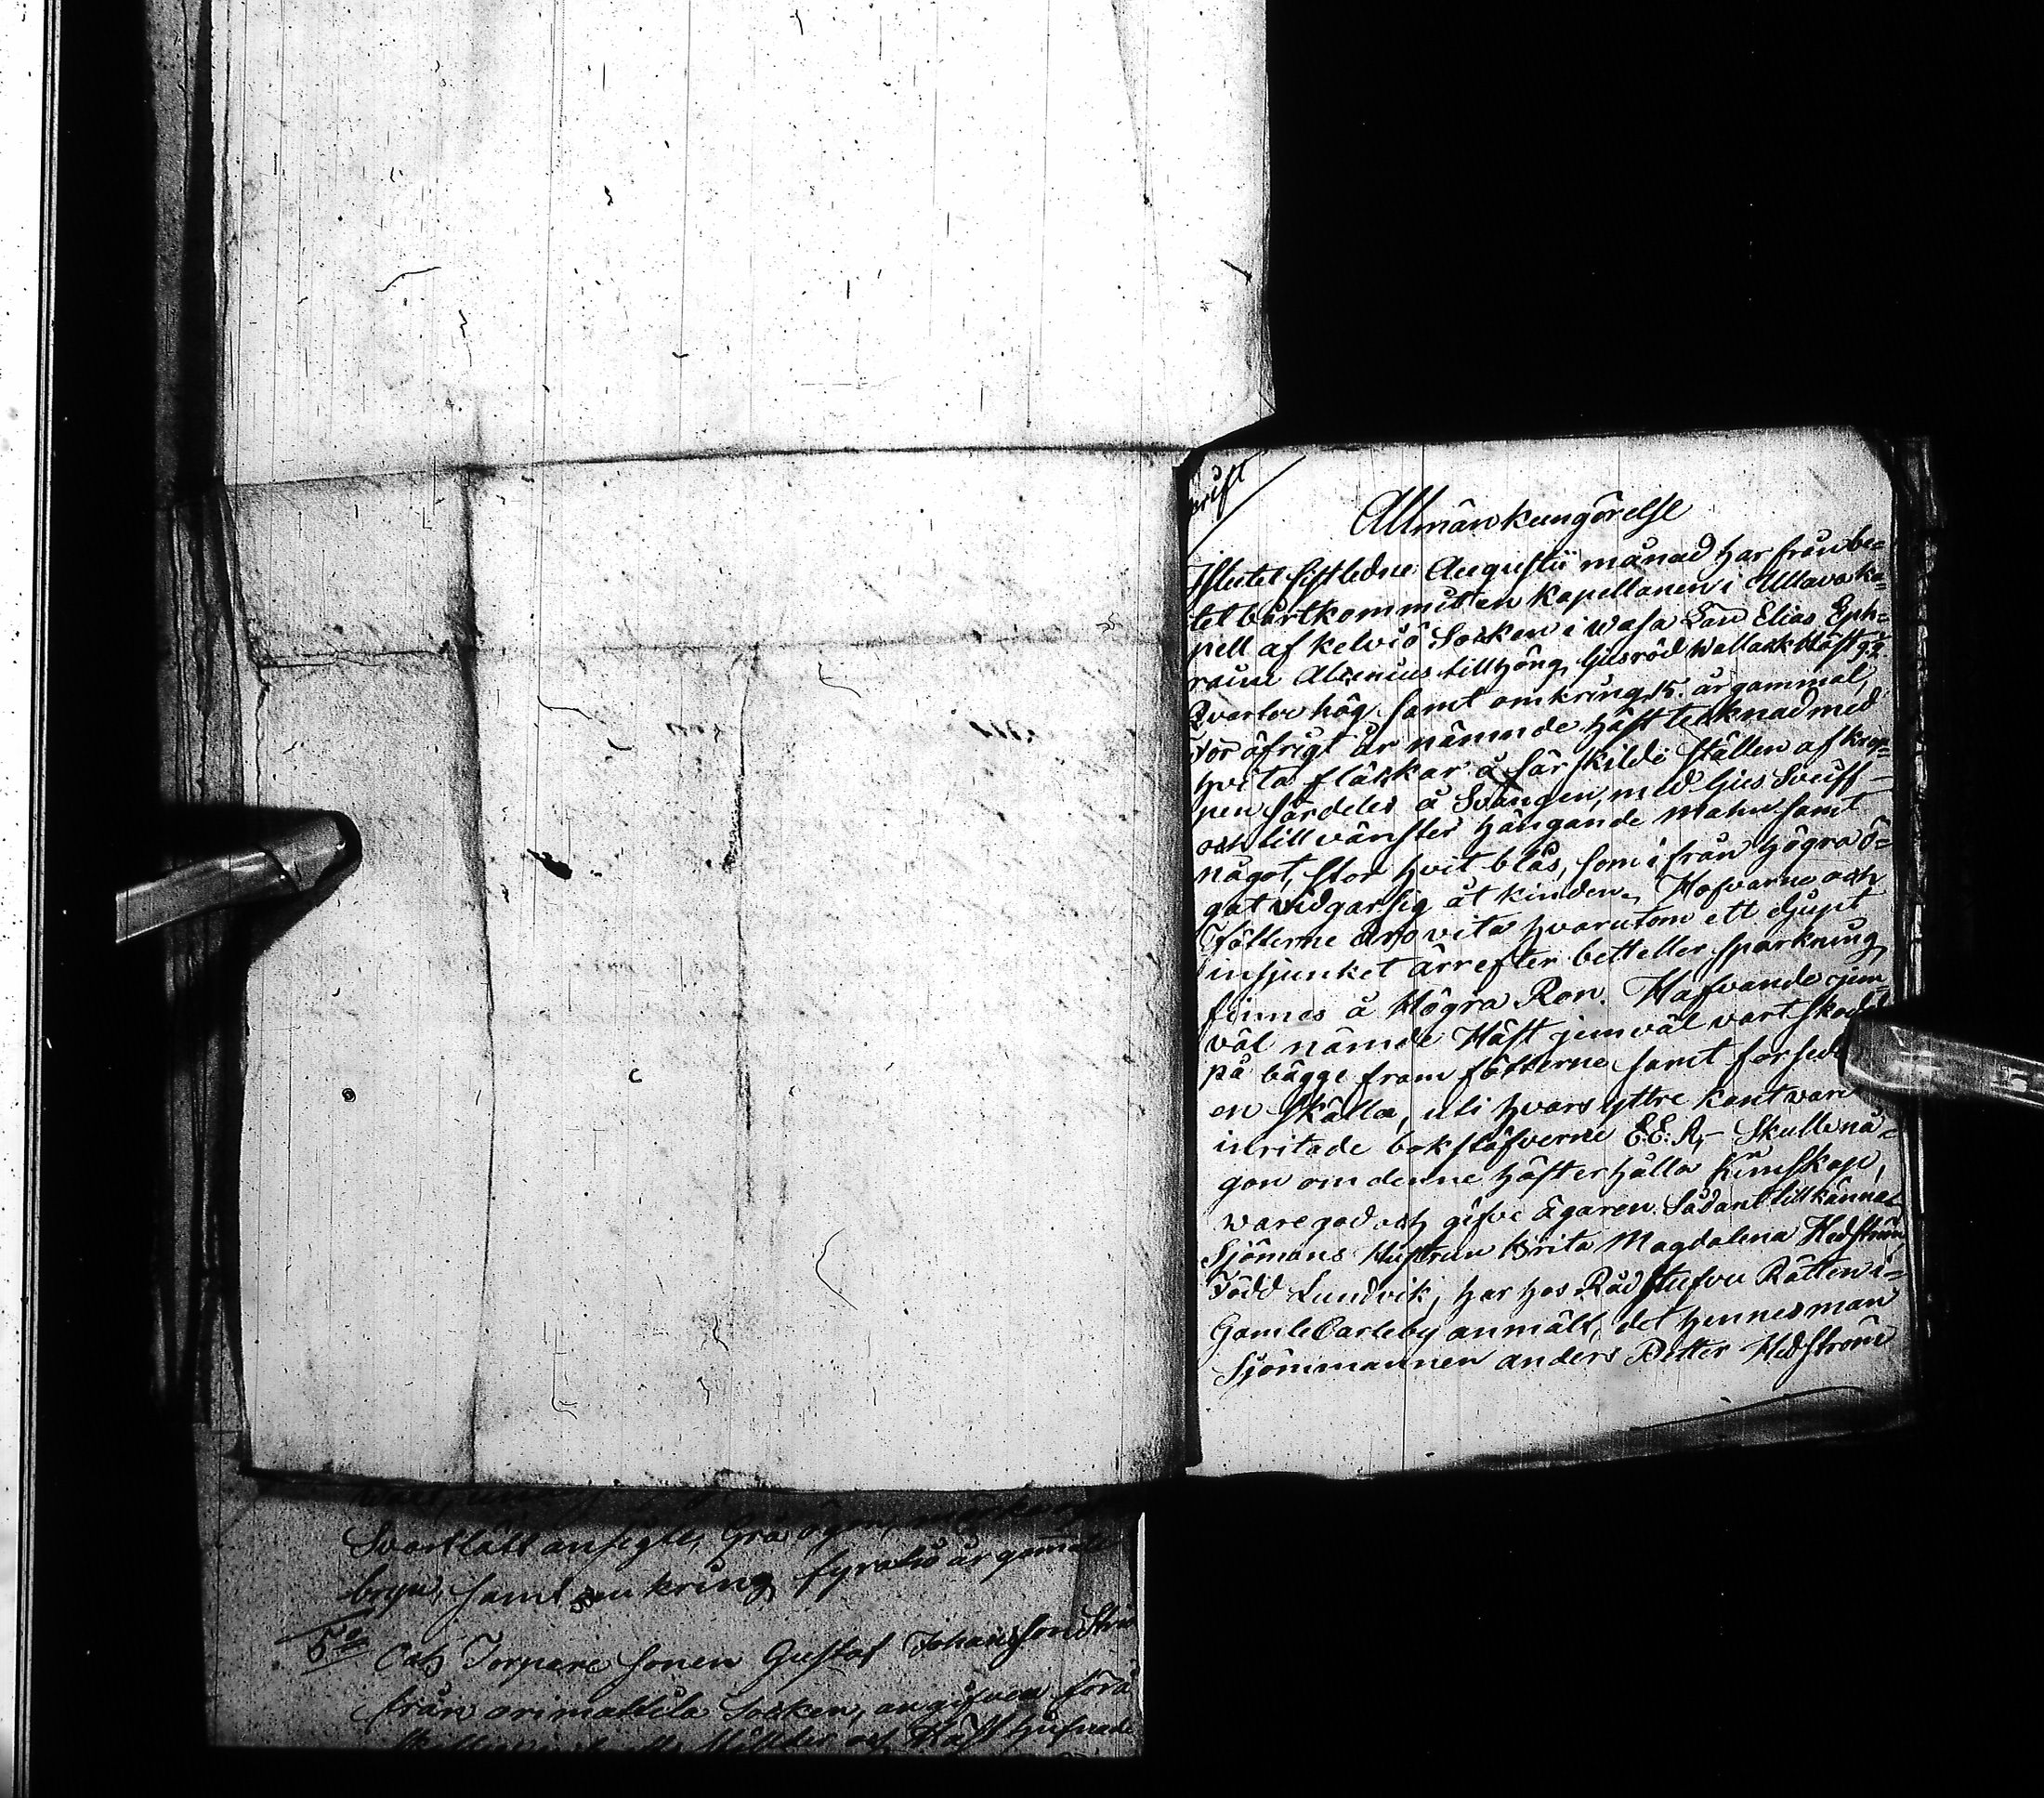 Allmän kungörelse
I slutet sistledne Augustii månad har från be-
tet bårtkommit en kapellanen i Ullava ka-
pell af kelviö Socken i Wasa Län Elias Eph-
raim Alcenius tillhörig ljusröd Wallack Häst 9¾
Qvarter hög, samt omkring 15. år gammal,
För öfrigt är nämnde häst tecknad med
hvita fläckar å särskilde ställen af krop-
pen särdeles å Svången, med ljus Svuff
och till vänster hängande Mahn samt
något stor hvit blås, som i från högra ö-
gat vidgar sig åt kinden, Hofvarne och
Fötterne äro vita hvarutom ett djupt
insjunket ärr efter bett eller sparkning
finnes å Högra Ron. Hafvande jem-
väl nämde Häst jemväl vart skodd
på bägge fram fötterne samt försedd
en skälla, uti hvars yttre kant vare
inritade bokstäfverne E.E.A,- Skulle nå-
gon om denne häst erhålla kunskap,
ware god och gifve ägaren Sådant tillkänna
Sjömans Hustrun Brita Magdalena Hedström
Född Lundvik, har hos Rådstufvu Rätten i
Gamle Carleby anmält, det hennes man
Sjömmannen anders Petter Hedström
Svartlätt ansigte, Grå ögon, mörka ögon
bryn, samt omkring fyratio år gammal
5o Och Torpare sonen Gustaf Johansson
från orimattila Socken, angifven för
och Häst